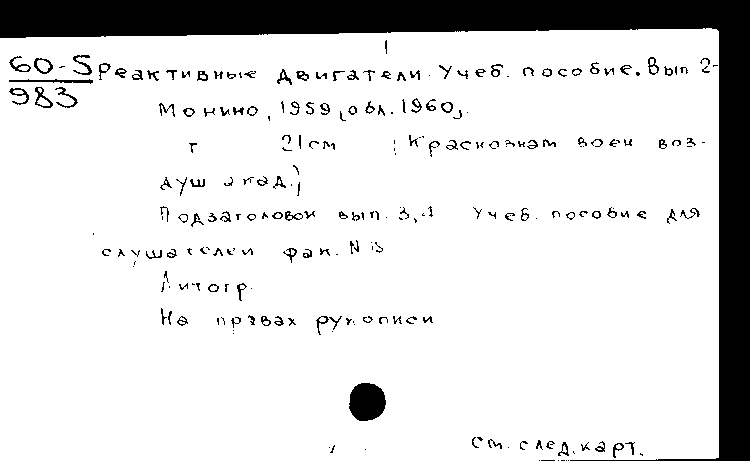 1
60-5 Реактивные двигатели. Учеб. пособие. Вып 2-
983
Монино, 1959 [обл. 1960].
т 21см (Краснознам воен воз-
душ акад.)
Подзаголовок вып. 3,4 Учеб. пособие для
слушателей фак. N
Литогр.
На правах рукописи
См. след. карт.